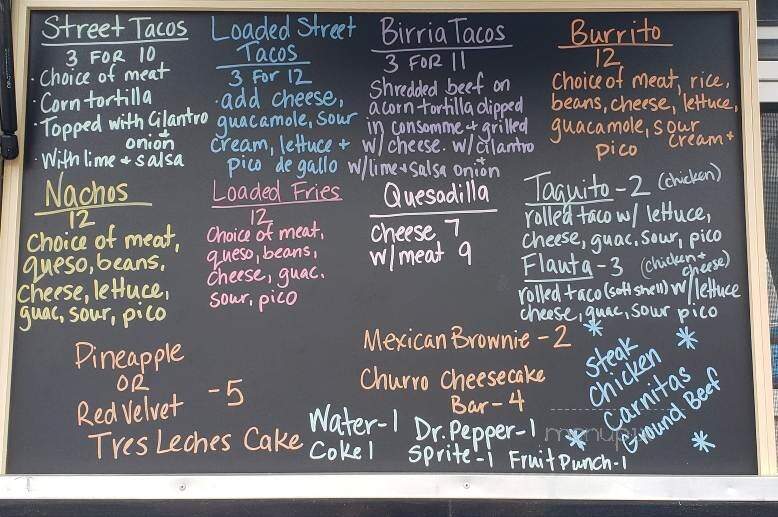 Street Tacos
3 FOR 10
· Choice of meat
· Corn tortilla
· Topped with Cilantro
+
onion
· With lime + salsa
Loaded Street
Tacos
3 For 12
· add cheese,
guacamole, sour
cream, lettuce +
pico de gallo
Birria Tacos
3 FOR 11
Shredded beef on
a corn tortilla dipped
in consomme + grilled
w/ cheese. w/ cilantro
+
w/ lime + salsa onion
Burrito
12
Choice of meat, rice,
beans, cheese, lettuce,
guacamole, sour
cream +
pico
Nachos
12
Choice of meat,
queso, beans,
cheese, lettuce,
guac, sour, pico
Loaded Fries
12
Choice of meat,
queso, beans,
cheese, guac.
sour, pico
Quesadilla
cheese 7
w/ meat 9
Taquito - 2 (chicken)
rolled taco w/ lettuce,
cheese, guac, sour, pico
Flauta - 3 (chicken +
cheese)
rolled taco (soft shell) w/ lettuce
cheese, guac, sour pico
Pineapple
OR
Red Velvet - 5
Tres Leches Cake
Mexican Brownie - 2
Churro Cheesecake
Bar - 4
Steak
Chicken
Carnitas
Ground Beef
Water - 1
Coke 1
Dr. Pepper - 1
Sprite - 1
Fruit Punch - 1